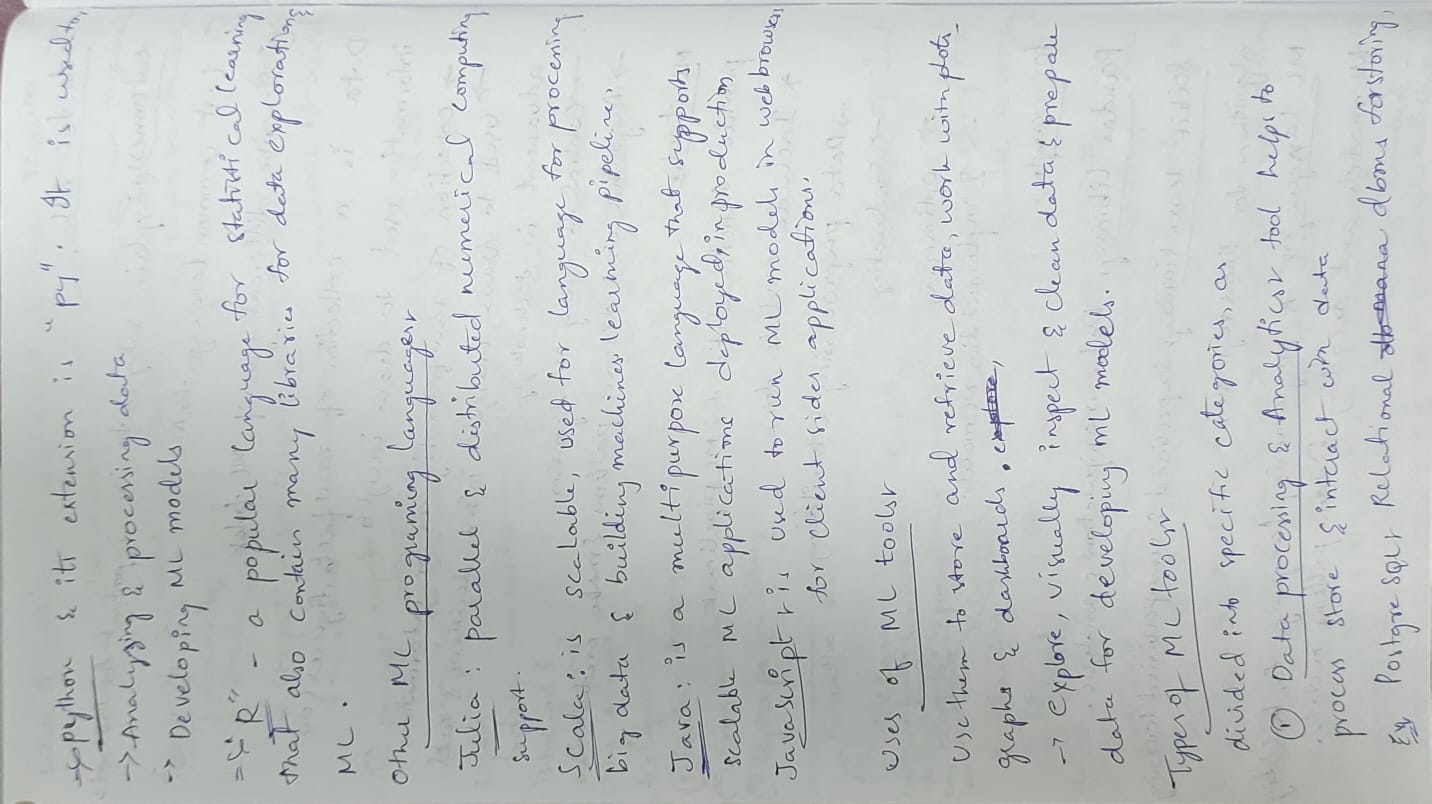 → python & its extension is "py". It is used to,
→ Analyzing & processing data
→ Developing ML models
⇒ "R" - a popular language for statistical learning
that also contain many libraries for data exploration &
ML.
Other ML programing languages:
Julia: parallel & distributed numerical computing
support.
Scala: is scalable, used for language for processing
big data & building machines learning pipeline.
Java: is a multipurpose language that supports
scalable ML applications deployed, in production
Javascript: is used to run ML models in web browsers
for client sides applications.
Uses of ML tools:
Use them to store and retrieve data, work with plots,
graphs & dashboards. explore,
→ explore, visually inspect & clean data & prepare
data for developing ML models.
Types of ML tools:
divided into specific categories, as
① Data processing & Analytics: tool helps to
process store & interact with data
Eg Postgre SQL: Relational db mana dbms for storing,